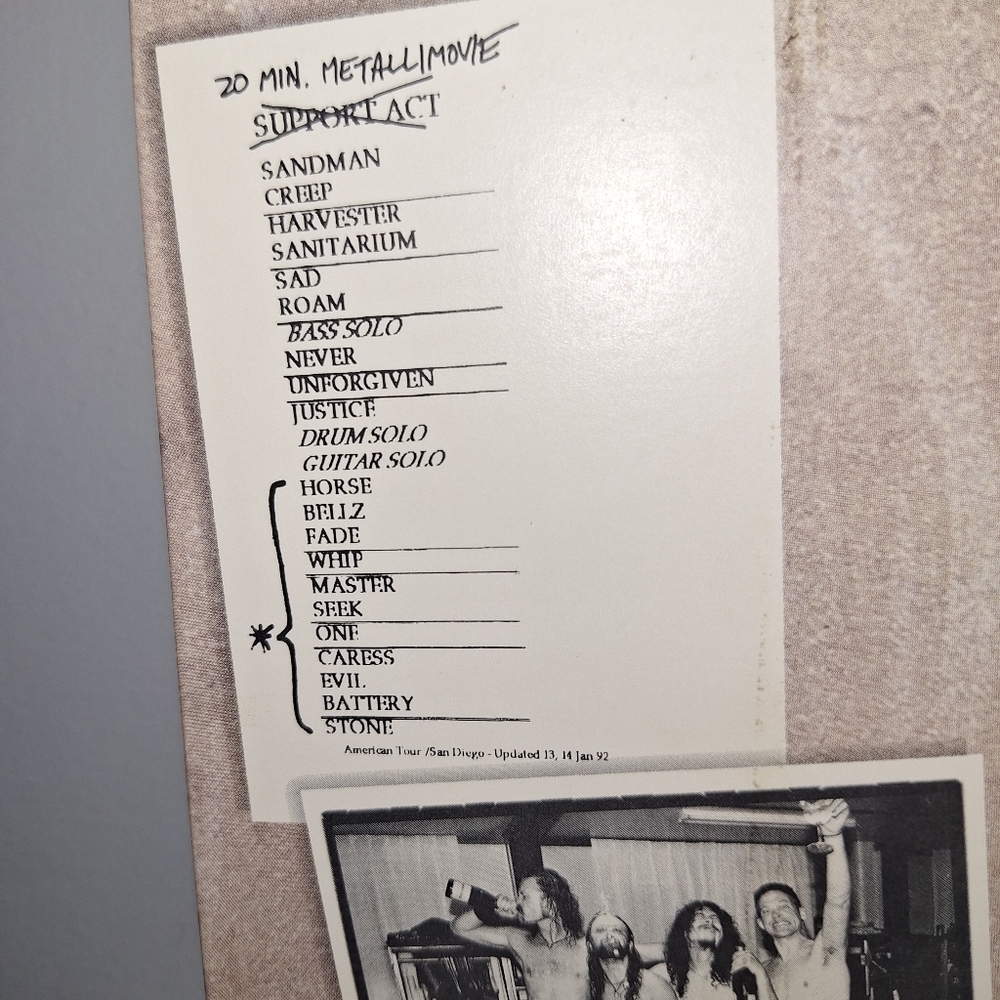 20 MIN. METALLIMOVIE
SUPPORT ACT
SANDMAN
CREEP
HARVESTER
SANITARIUM
SAD
ROAM
BASS SOLO
NEVER
UNFORGIVEN
JUSTICE
DRUM SOLO
GUITAR SOLO
HORSE
BELLZ
FADE
WHIP
MASTER
SEEK
ONE
CARESS
EVIL
BATTERY
STONE
American Tour /San Diego - Updated 13, 14 Jan 92